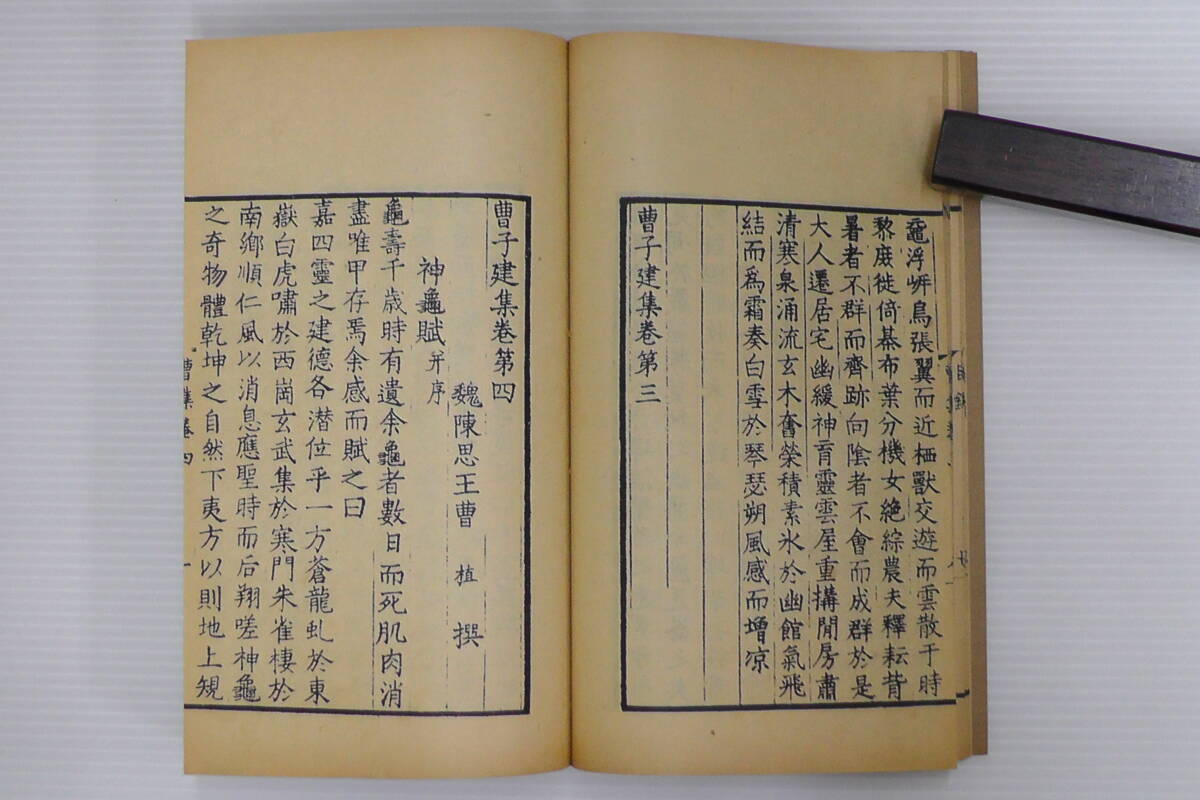 黿浮㟁鳥張翼而近栖獸交遊而雲散于時
黎庶徙倚棊布葉分機女絶綜農夫釋耘背
暑者不群而齊跡向陰者不會而成群於是
大人遷居宅幽緩神育靈雲屋重搆閒房肅
清寒泉涌流玄木奮榮積素氷於幽館氣飛
結而爲霜奏白雪於琴瑟朔風感而增凉
曹子建集卷第三
曹子建集卷第四
魏陳思王曹 植 撰
神龜賦 并序
龜壽千歲時有遺余龜者數日而死肌肉消
盡唯甲存焉余感而賦之曰
嘉四靈之建德各潜位乎一方蒼龍虬於東
嶽白虎嘯於西崗玄武集於寒門朱雀棲於
南鄉順仁風以消息應聖時而后翔嗟神龜
之奇物體乾坤之自然下夷方以則地上規
曹集卷四
一